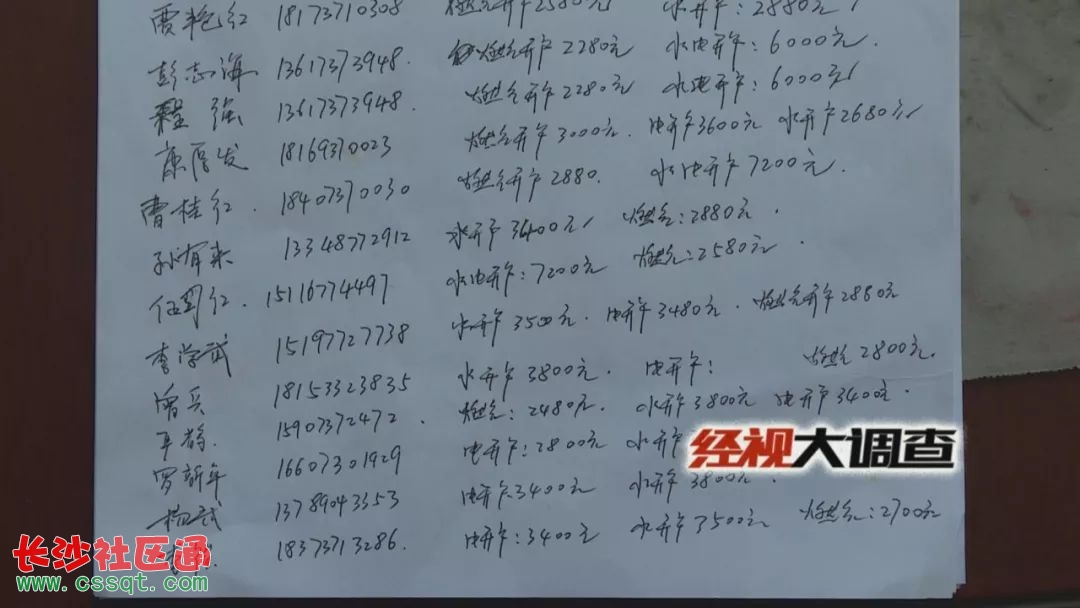 贾艳红 18173710308 燃气开户2580元 水开户:2880元
彭志海 13617373948. 燃气开户2280元 水电开户:6000元.
强 13617373948. 燃气开户2280元 水电开户:6000元
康厚发 18169370023 燃气开户3000元. 电开户3600元 水开户2680元
曹桂红. 18407370030 燃气开户2880. 水电开户7200元.
孙有来 13348772912 水开户3600元 燃气:2880元.
伍 红. 15116774497 水电开户:7200元 燃气:2580元.
李学武 15197727738 水开户3500元. 电开户3480元. 燃气开户2880元
曾兵 18153323835 水开户3800元. 电开户: 燃气2800元.
15907372472. 燃气:2480元. 水开户3800元 电开户3400元.
罗新年 16607301929 电开户:2800元 水开户
杨武 13789043353 电开户3400元 水开户3800元.
18373713286. 电开户:3400元 水开户3500元 燃气:2700元
经视大调查
长沙社区通
www.cssqt.com